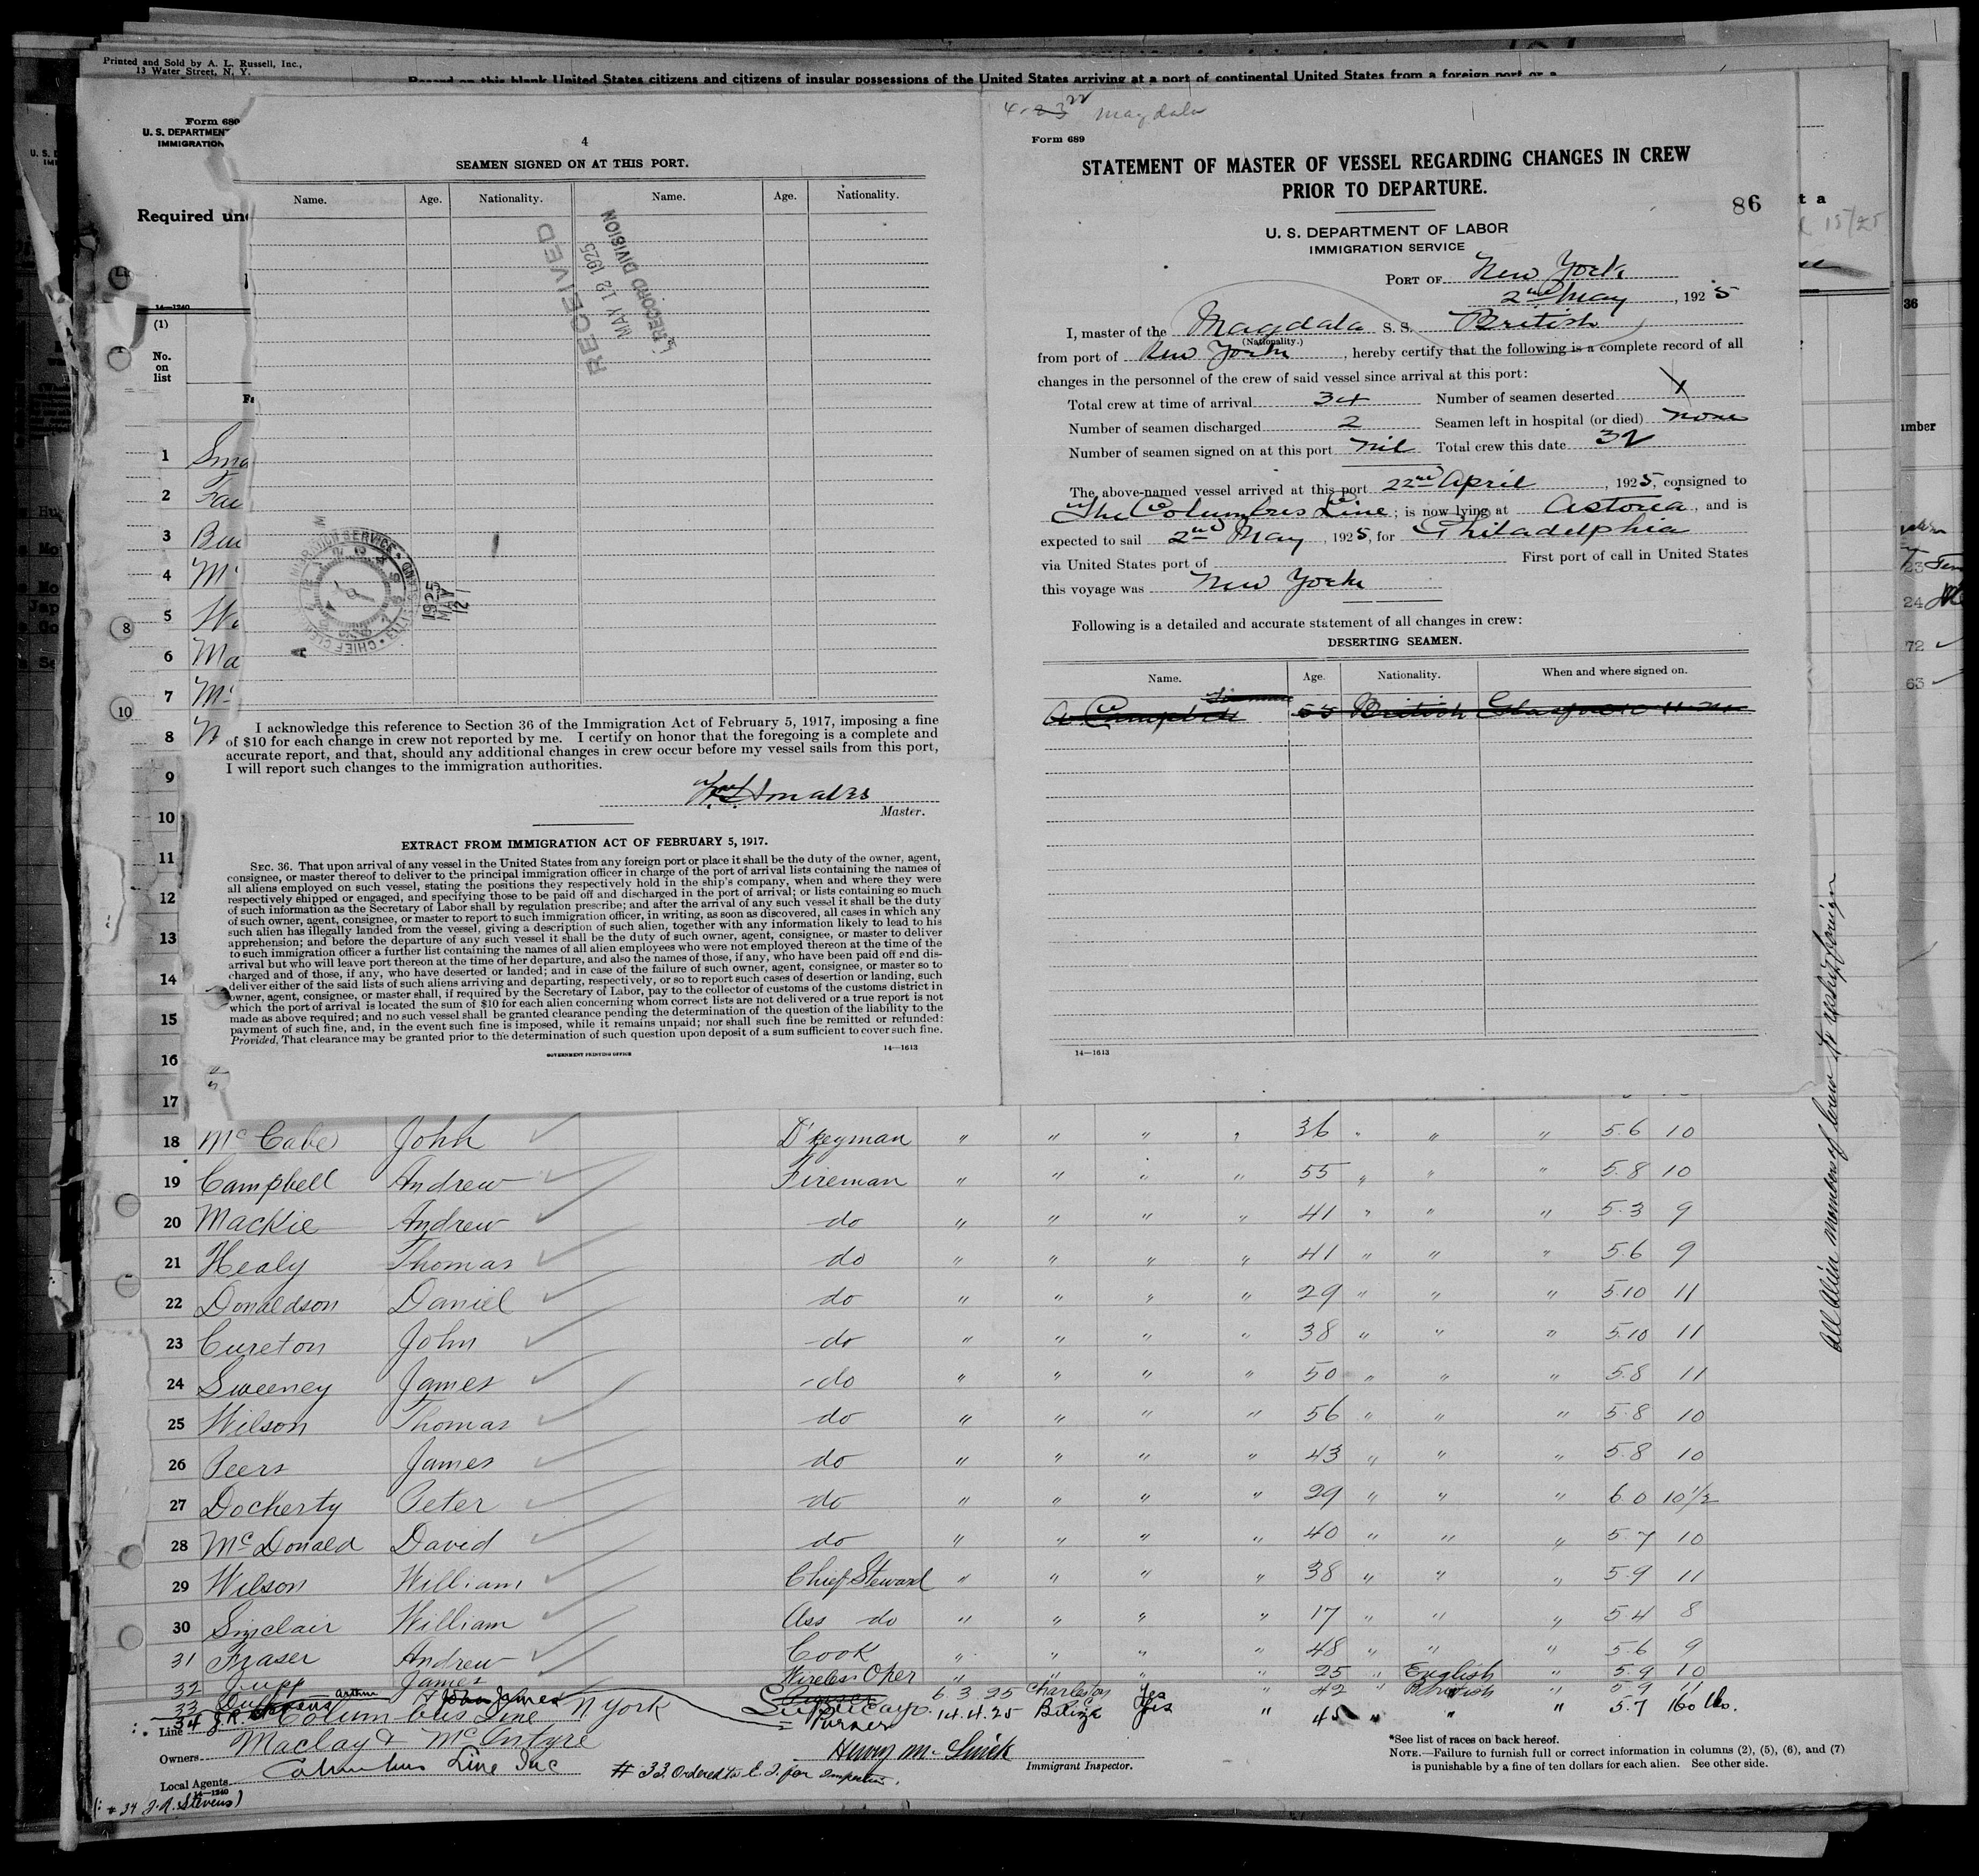 Printed and Sold by A. L. Russell, Inc.,
13 Water Street, N. Y.
Record on this blank United States citizens and citizens of insular possessions of the United States arriving at a port of continental United States from a foreign port or a
Form 689
U. S. DEPARTMENT
IMMIGRATION
Required un
14—1240
(1)
No.
on
list
4
SEAMEN SIGNED ON AT THIS PORT.
Name. Age. Nationality. Name. Age. Nationality.
RECEIVED
MAY 12 1925
RECORD DIVISION
1925
MAY
12
1
2
3
4
5
6
7
8
9
10
11
12
13
14
15
16
17
I acknowledge this reference to Section 36 of the Immigration Act of February 5, 1917, imposing a fine
of $10 for each change in crew not reported by me. I certify on honor that the foregoing is a complete and
accurate report, and that, should any additional changes in crew occur before my vessel sails from this port,
I will report such changes to the immigration authorities.
Master.
EXTRACT FROM IMMIGRATION ACT OF FEBRUARY 5, 1917.
SEC. 36. That upon arrival of any vessel in the United States from any foreign port or place it shall be the duty of the owner, agent,
consignee, or master thereof to deliver to the principal immigration officer in charge of the port of arrival lists containing the names of
all aliens employed on such vessel, stating the positions they respectively hold in the ship's company, when and where they were
respectively shipped or engaged, and specifying those to be paid off and discharged in the port of arrival; or lists containing so much
of such information as the Secretary of Labor shall by regulation prescribe; and after the arrival of any such vessel it shall be the duty
of such owner, agent, consignee, or master to report to such immigration officer, in writing, as soon as discovered, all cases in which any
such alien has illegally landed from the vessel, giving a description of such alien, together with any information likely to lead to his
apprehension; and before the departure of any such vessel it shall be the duty of such owner, agent, consignee, or master to deliver
to such immigration officer a further list containing the names of all alien employees who were not employed thereon at the time of the
arrival but who will leave port thereon at the time of her departure, and also the names of those, if any, who have been paid off and dis-
charged and of those, if any, who have deserted or landed; and in case of the failure of such owner, agent, consignee, or master so to
deliver either of the said lists of such aliens arriving and departing, respectively, or so to report such cases of desertion or landing, such
owner, agent, consignee, or master shall, if required by the Secretary of Labor, pay to the collector of customs of the customs district in
which the port of arrival is located the sum of $10 for each alien concerning whom correct lists are not delivered or a true report is not
made as above required; and no such vessel shall be granted clearance pending the determination of the question of the liability to the
payment of such fine, and, in the event such fine is imposed, while it remains unpaid; nor shall such fine be remitted or refunded:
Provided, That clearance may be granted prior to the determination of such question upon deposit of a sum sufficient to cover such fine.
GOVERNMENT PRINTING OFFICE 14—1613
Magdala
Form 689
STATEMENT OF MASTER OF VESSEL REGARDING CHANGES IN CREW
PRIOR TO DEPARTURE.
86
U. S. DEPARTMENT OF LABOR
IMMIGRATION SERVICE
PORT OF New York
2nd May, 1925
I, master of the Magdala S. S. British
(Nationality.)
from port of New York, hereby certify that the following is a complete record of all
changes in the personnel of the crew of said vessel since arrival at this port:
Total crew at time of arrival 34 Number of seamen deserted
Number of seamen discharged 2 Seamen left in hospital (or died) none
Number of seamen signed on at this port nil Total crew this date 32
The above-named vessel arrived at this port 22nd April, 1925, consigned to
The Columbus Line; is now lying at Astoria, and is
expected to sail 2nd May, 1925, for Philadelphia
via United States port of First port of call in United States
this voyage was New York
Following is a detailed and accurate statement of all changes in crew:
DESERTING SEAMEN.
Name. Age. Nationality. When and where signed on.
A. Campbell Fireman 55 British Glasgow
14—1613
All Alien members of crew to reship foreign
18 McCabe John D'keyman " " " " 36 " " " 5.6 10
19 Campbell Andrew Fireman " " " " 55 " " " 5.8 10
20 Mackie Andrew do " " " " 41 " " " 5.3 9
21 Healy Thomas do " " " " 41 " " " 5.6 9
22 Donaldson Daniel do " " " " 29 " " " 5.10 11
23 Cureton John do " " " " 38 " " " 5.10 11
24 Sweeney James do " " " " 50 " " " 5.8 11
25 Wilson Thomas do " " " " 56 " " " 5.8 10
26 Peers James do " " " " 43 " " " 5.8 10
27 Docherty Peter do " " " " 29 " " " 6.0 10½
28 McDonald David do " " " " 40 " " " 5.7 10
29 Wilson William Chief Steward " " " " 38 " " " 5.9 11
30 Sinclair William Ass do " " " " 17 " " " 5.4 8
31 Fraser Andrew Cook " " " " 48 " " " 5.6 9
32 Jupp James Wireless Oper " " " " 25 " English " 5.9 10
33 Arthur James 6.3.25 Charleston Yes " 42 " British " 5.9 11
34 Purser 14.4.25 Belize Yes " 45 " " " 5.7 160 lbs.
Line Columbus Line N York
Owners Maclay & McIntyre
Local Agents Columbus Line Inc
14—1240
# 33 Ordered to E. I. for inspection.
Immigrant Inspector.
*See list of races on back hereof.
NOTE.—Failure to furnish full or correct information in columns (2), (5), (6), and (7)
is punishable by a fine of ten dollars for each alien. See other side.
(: # 34 J. A. Stevens)